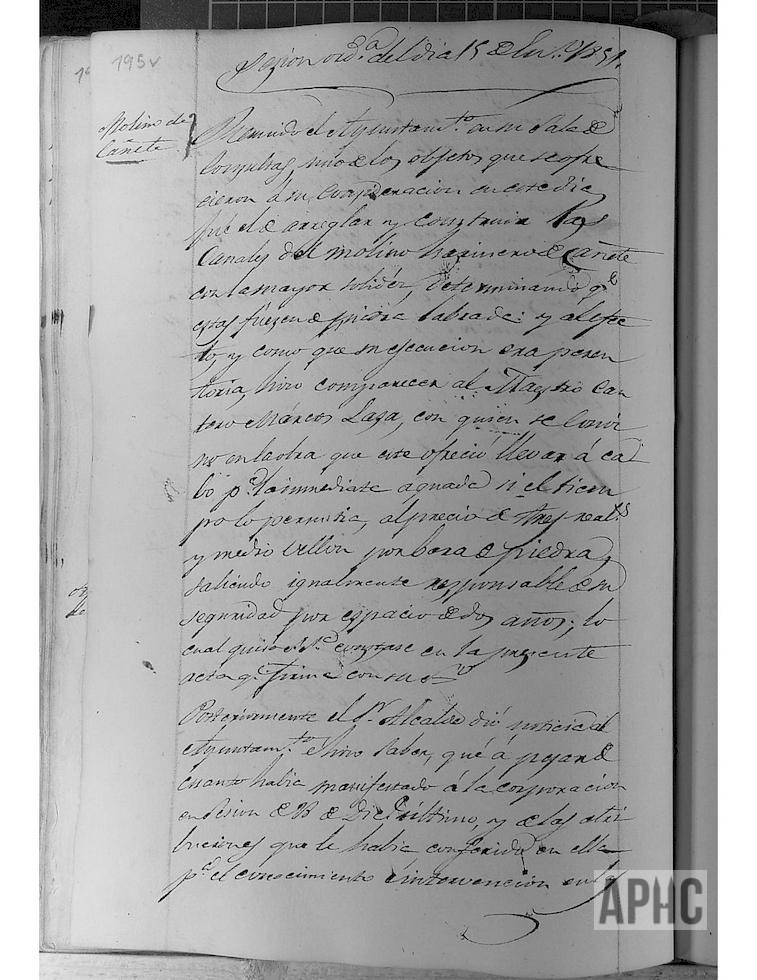 195v
Sesion ord.ª del dia 15 de En.º 1851.
Molino de
Cañete
Reunido el Ayuntam.to en su Sala de
Consultas, uno de los objetos que se ofre
cieron á su consideracion en este dia,
fué el de arreglar y construir las
Canales del molino harinero de Cañete
con la mayor solidéz, determinando q.e
estas fuesen de piedra labrada: y al efec
to, y como que su ejecucion era peren
toria, hizo comparecer al Maestro Can
tero Márcos Laza, con quien se convi
no en la obra que este ofreció llevar á ca
bo p.ª la inmediata aguada si el tiem
po lo permitia, al precio de tres real.s
y medio vellon por bara de piedra,
saliendo igualmente responsable de su
seguridad por espacio de dos años; lo
cual quiso constase en la presente
acta q.e firma con su
Posteriormente el S.r Alcalde dió noticia al
Ayuntam.to é hizo saber, que á pesar de
cuanto habia manifestado á la corporacion
en Sesion de de Dic.e último, y de las atri
buciones que le habia conferido en ella
p.ª el conocimiento é intervencion en la
APHC